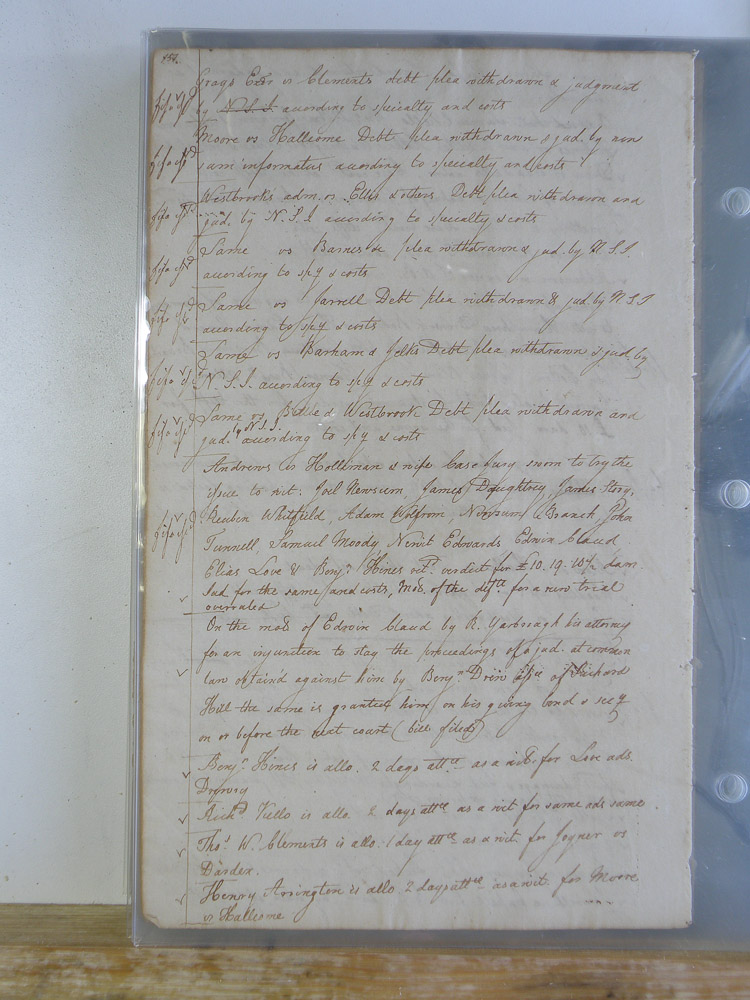 Grays Exor vs Clements debt plea withdrawn & judgment
by N.S.I. acording to specialty and costs
Moore vs Hallcome Debt plea withdrawn & jud. by non
sum informatus acording to specialty and costs
Westbrooks adm. vs Ellis & others Debt plea withdrawn and
jud. by N.S.I acording to specialty & costs
Same vs Barnes & plea withdrawn & jud. by N.S.I.
acording to spy & costs
Same vs Jarrell Debt plea withdrawn & jud by N S I
acording to spy & costs
Same vs Barham & Jelks Debt plea withdrawn & jud. by
N.S.I. acording to spy & costs
Same vs & Westbrook Debt plea withdrawn and
jud. by N.S.I. acording to spy & costs
Andrews vs Holliman & wife Case Jury sworn to try the
issue to wit: Joel Newsum, James Daughtrey, James Story,
Reuben Whitfield, Adam Wolfrom, Newsum Branch, John
Tunnell, Samuel Moody, Newit Edwards Edwin Claud
Elias Love & Benjn Hines retd. verdict for £10.19.10½ dam.
Jud for the same and costs, Mo. of the dift. for a new trial
overruled
On the mo. of Edwin Claud by R. Yarbrough his attorney
for an injunction to stay the proceedings of a jud. at common
law obtain'd against him by Benjn. Drew of Richard
Hill the same is granted him on his giving bond & secy
on or before the next court (bill filed)
Benjn. Hines is allo. 2 days attce. as a wit. for Love ads.
Drewry
Richd Vello is allo. 2 days attce as a wit for same ads same.
Thos. W. Clements is allo. 1 day attce as a wit. for Joyner vs
Darden.
Henry Arrington is allo. 2 days attce as a wit. for Moore
vs Hallcome